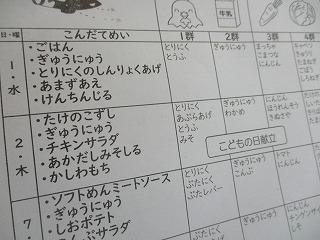 牛乳
日・曜
こんだてめい
1群
2群
3群
4群
1
水
・ごはん
・ぎゅうにゅう
・とりにくのしんりょくあげ
・あまずあえ
・けんちんじる
とりにく
とうふ
ぎゅうにゅう
まっちゃ
こまつな
にんじん
キャベツ
きゅうり
2
木
・たけのこずし
・ぎゅうにゅう
・チキンサラダ
・あかだしみそしる
・かしわもち
とりにく
あぶらあげ
とうふ
みそ
ぎゅうにゅう
わかめ
にんじん
ほうれんそう
きぬさや
こどもの日献立
7
・ソフトめんミートソース
・ぎゅうにゅう
・しおポテト
・こんぶサラダ
とりにく
ぶたにく
ぶたレバー
ぎゅうにゅう
こんぶ
トマト
にんじん
にんにく